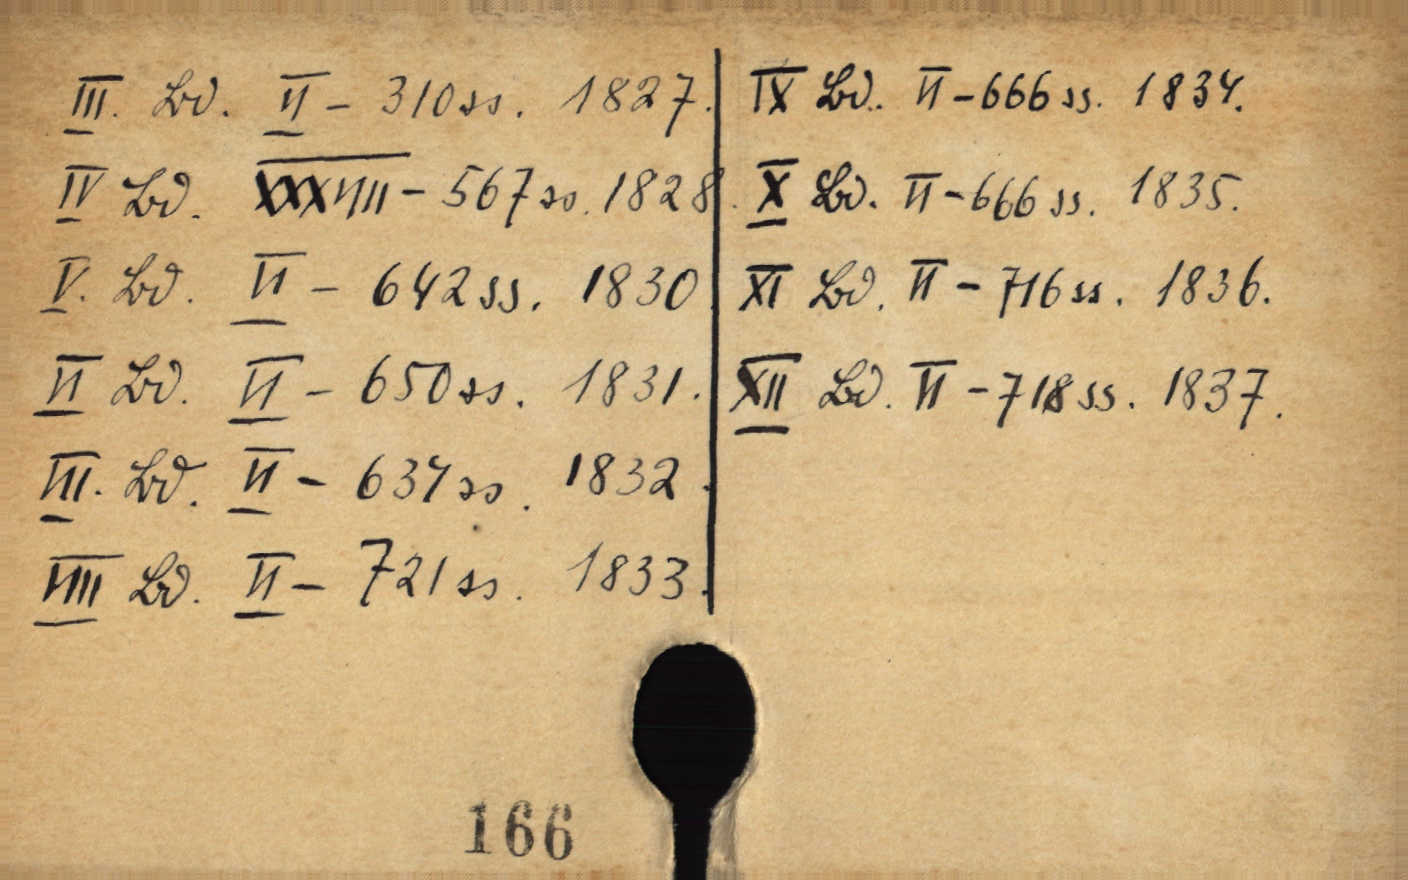 III. Bd. VI – 310 ss. 1827.
IV Bd. XXXVIII – 567 ss. 1828.
V. Bd. VI – 642 ss. 1830.
VI Bd. VI – 650 ss. 1831.
VII. Bd. VI – 634 ss. 1832.
VIII Bd. VI – 721 ss. 1833.
IX Bd. VI – 666 ss. 1834.
X Bd. VI – 666 ss. 1835.
XI Bd. VI – 716 ss. 1836.
XII Bd. VI – 718 ss. 1837.
166